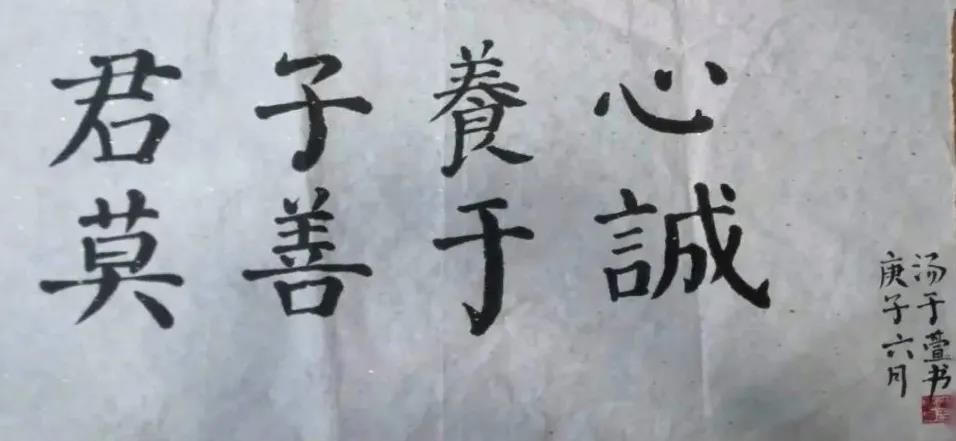 君子養心
莫善于誠
庚子六月
汤于萱书